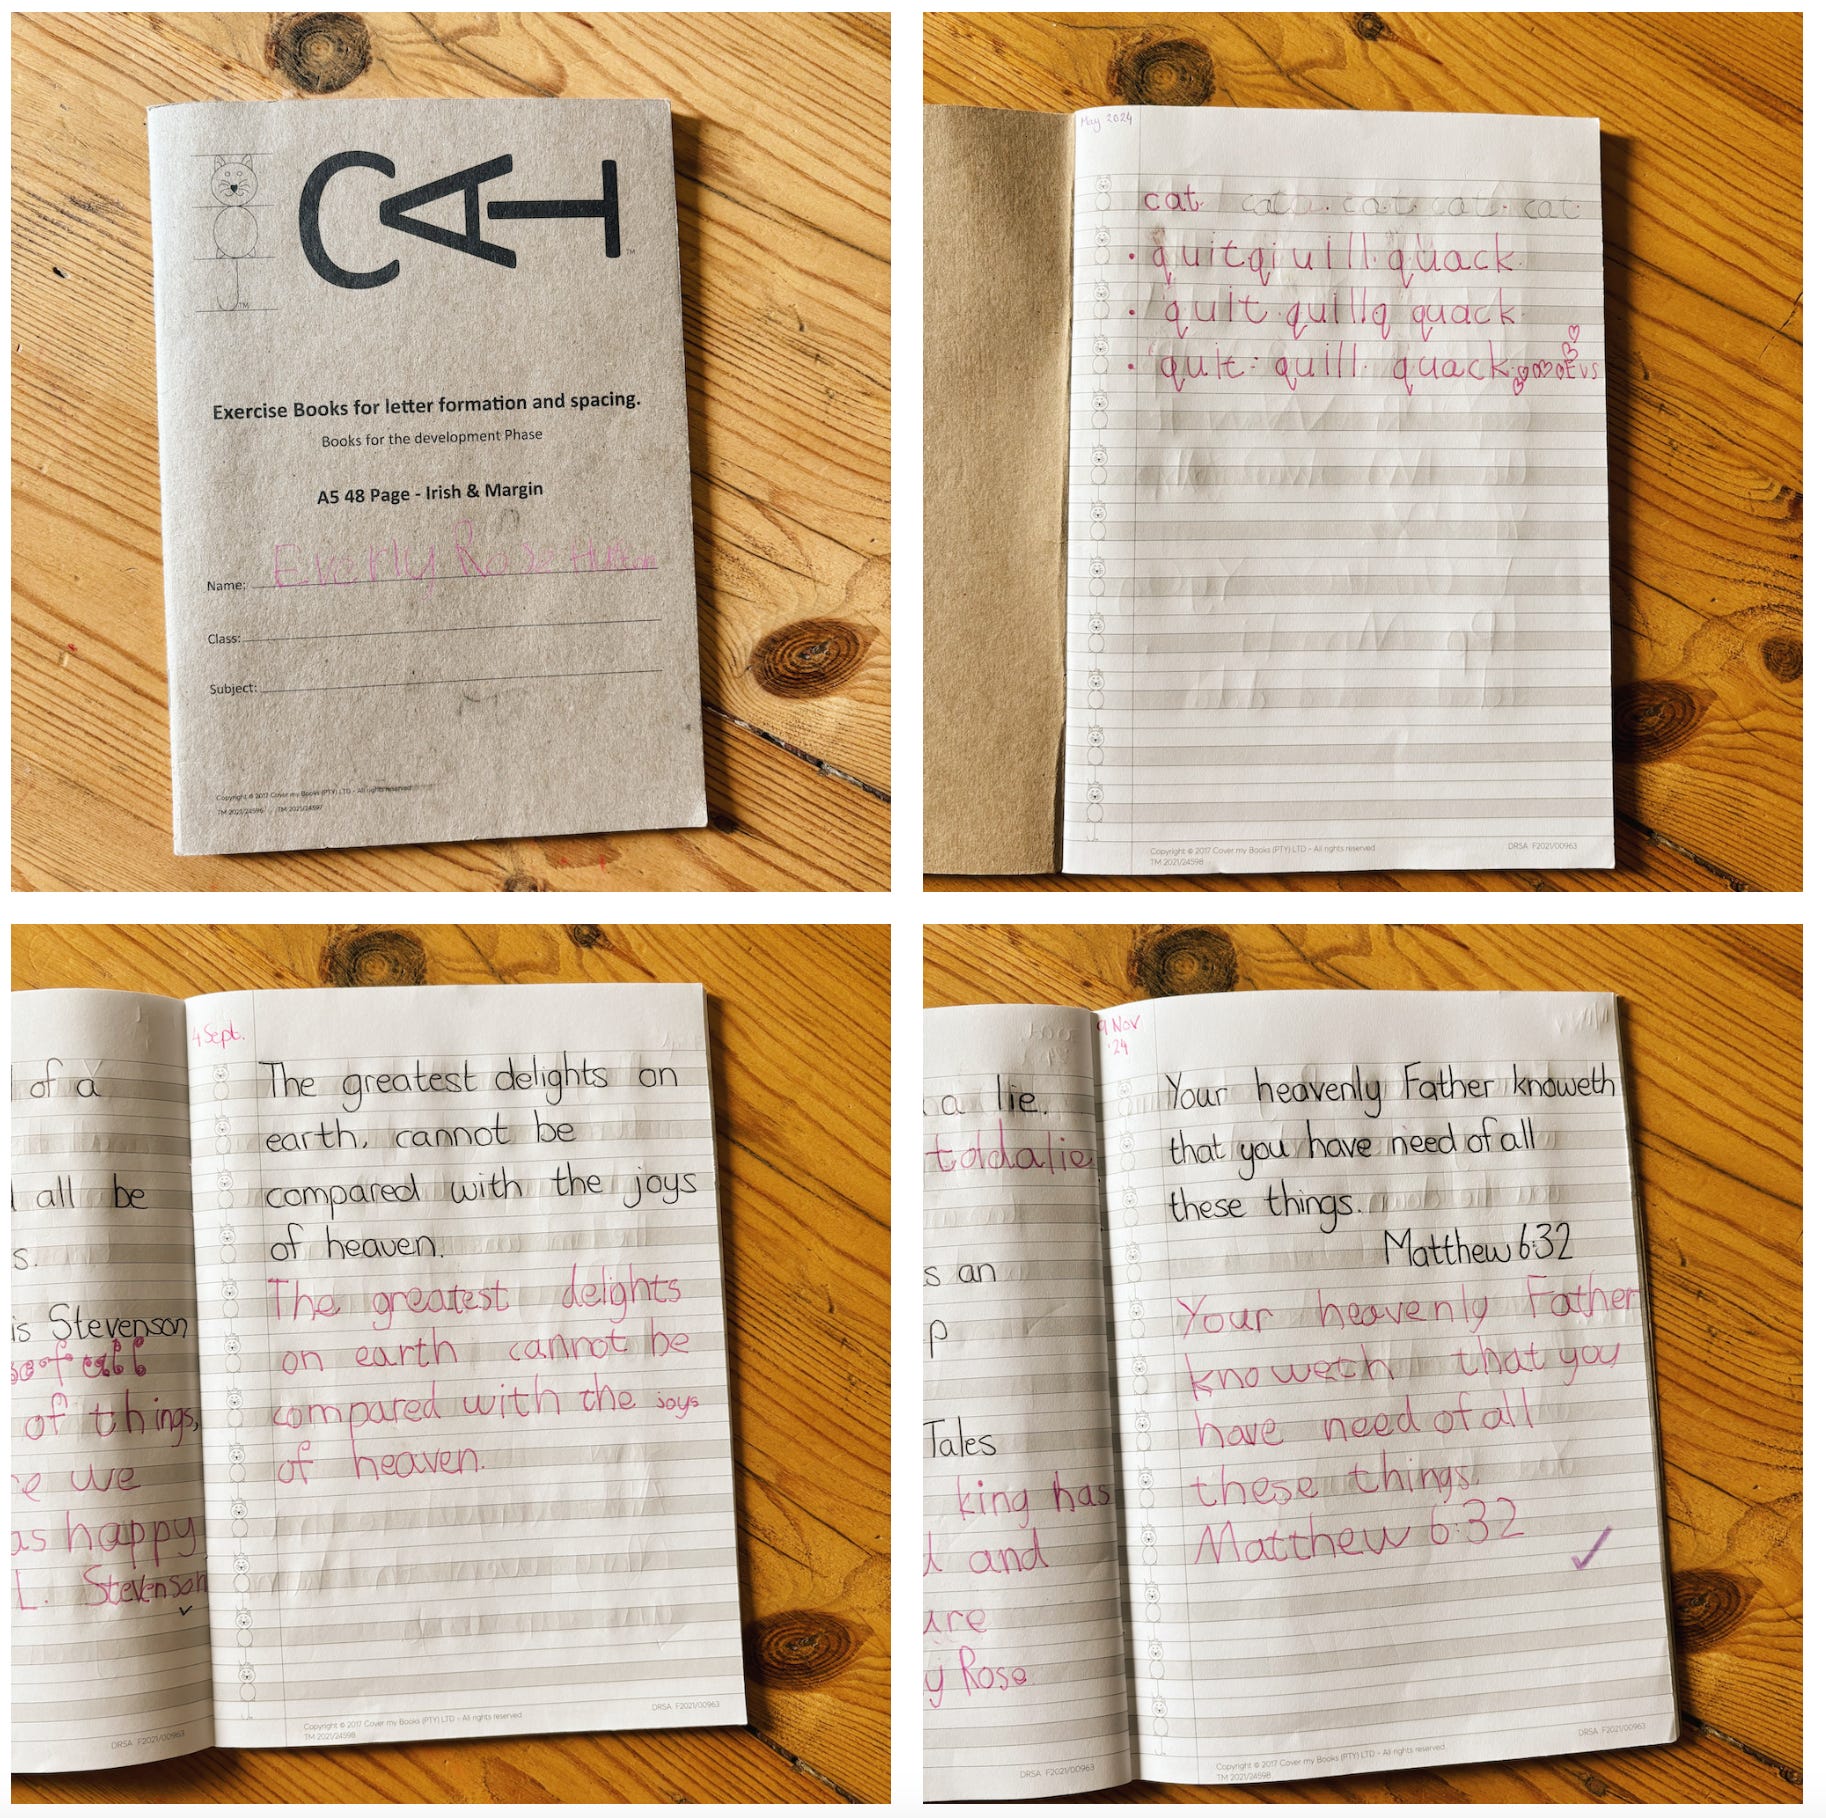 CAT
TM
TM
Exercise Books for letter formation and spacing.
Books for the development Phase
A5 48 Page - Irish & Margin
Name: Everly Rose
Class:
Subject:
Copyright © 2017 Cover my Books (PTY) LTD - All rights reserved
TM 2021/24596 TM 2021/24597
May 2024
cat. cat. cat. cat. cat.
• quit qi uill quack
• quit quill q quack
• quit quill quack Evs
Copyright © 2017 Cover my Books (PTY) LTD - All rights reserved
TM 2021/24598
DRSA F2021/00963
of a
all be
s.
is Stevenson
of all
of things,
e we
as happy
L. Stevenson
DRSA F2021/00963
4 Sept.
The greatest delights on
earth, cannot be
compared with the joys
of heaven.
The greatest delights
on earth cannot be
compared with the joys
of heaven.
Copyright © 2017 Cover my Books (PTY) LTD - All rights reserved
TM 2021/24598
DRSA F2021/00963
a lie.
told a lie
s an
p
Tales
king has
d and
ure
y Rose
DRSA F2021/00963
9 Nov
'24
Your heavenly Father knoweth
that you have need of all
these things.
Matthew 6:32
Your heavenly Father
knoweth that you
have need of all
these things.
Matthew 6:32
Copyright © 2017 Cover my Books (PTY) LTD - All rights reserved
TM 2021/24598
DRSA F2021/00963